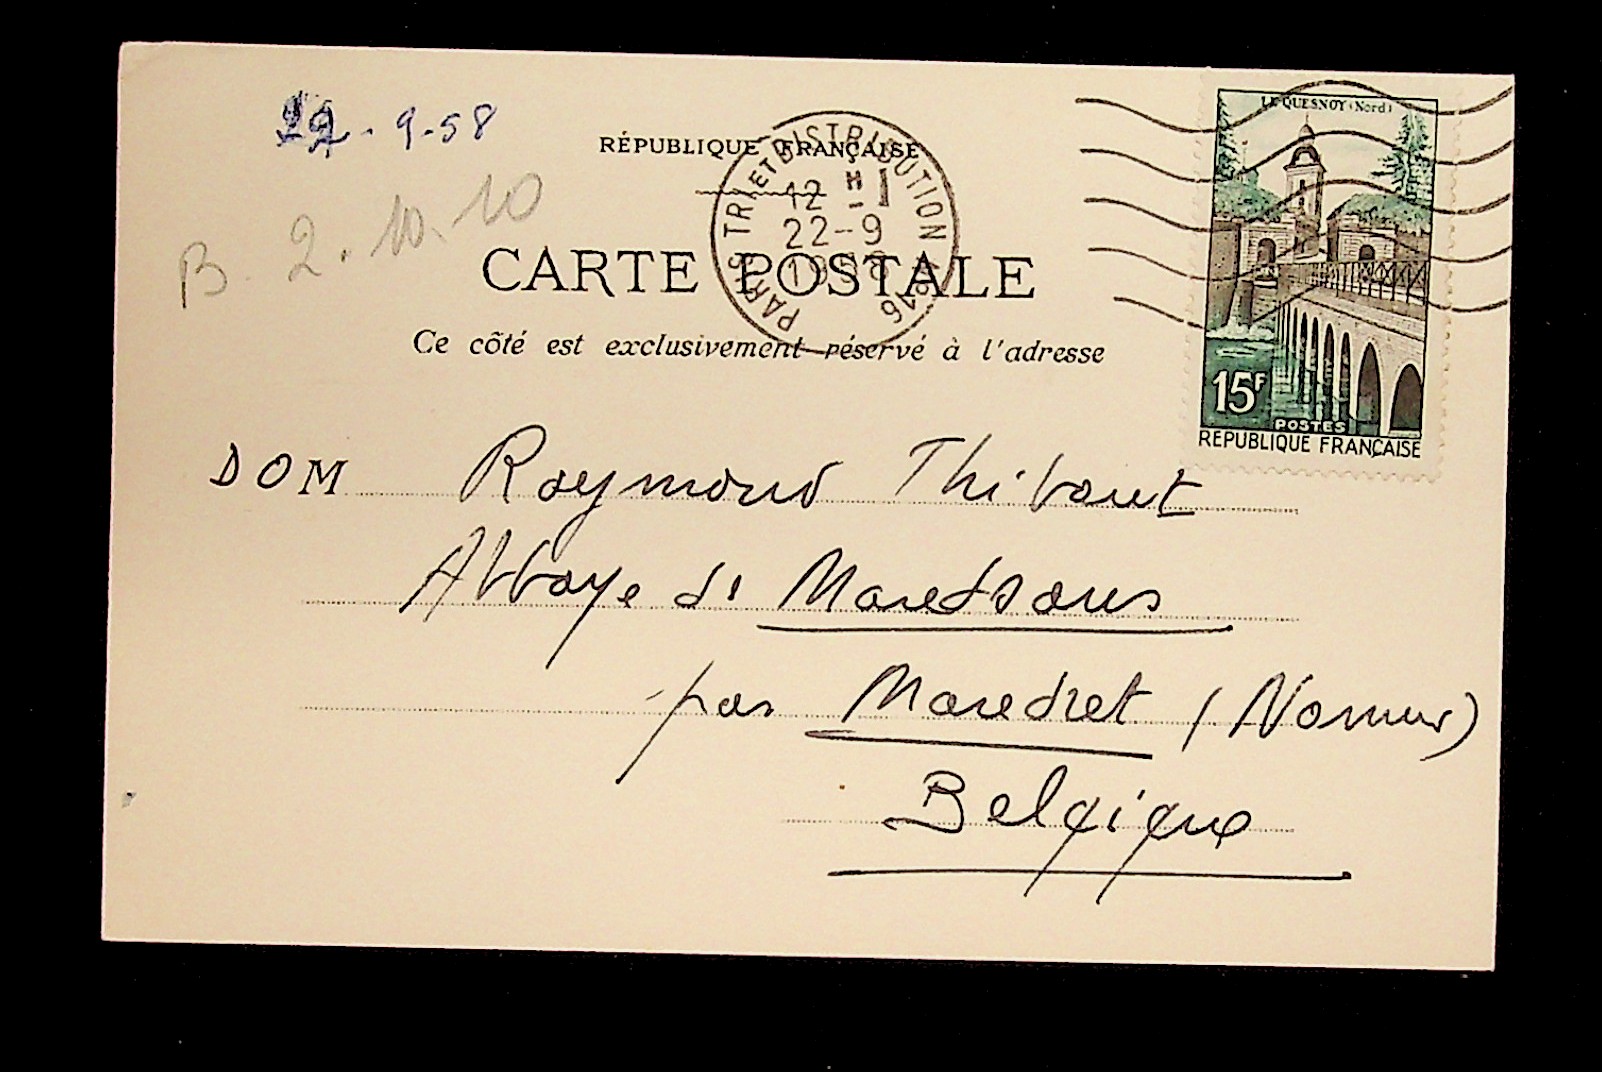 22-9-58
RÉPUBLIQUE FRANÇAISE
B. 2.10.10
CARTE POSTALE
Ce côté est exclusivement réservé à l'adresse
PARIS TRI ET DISTRIBUTION
12 H
22-9
1958
LE QUESNOY (Nord)
15F
POSTES
RÉPUBLIQUE FRANÇAISE
DOM Raymond Thibaut
Abbaye de Maredsous
par Maredret (Namur)
Belgique